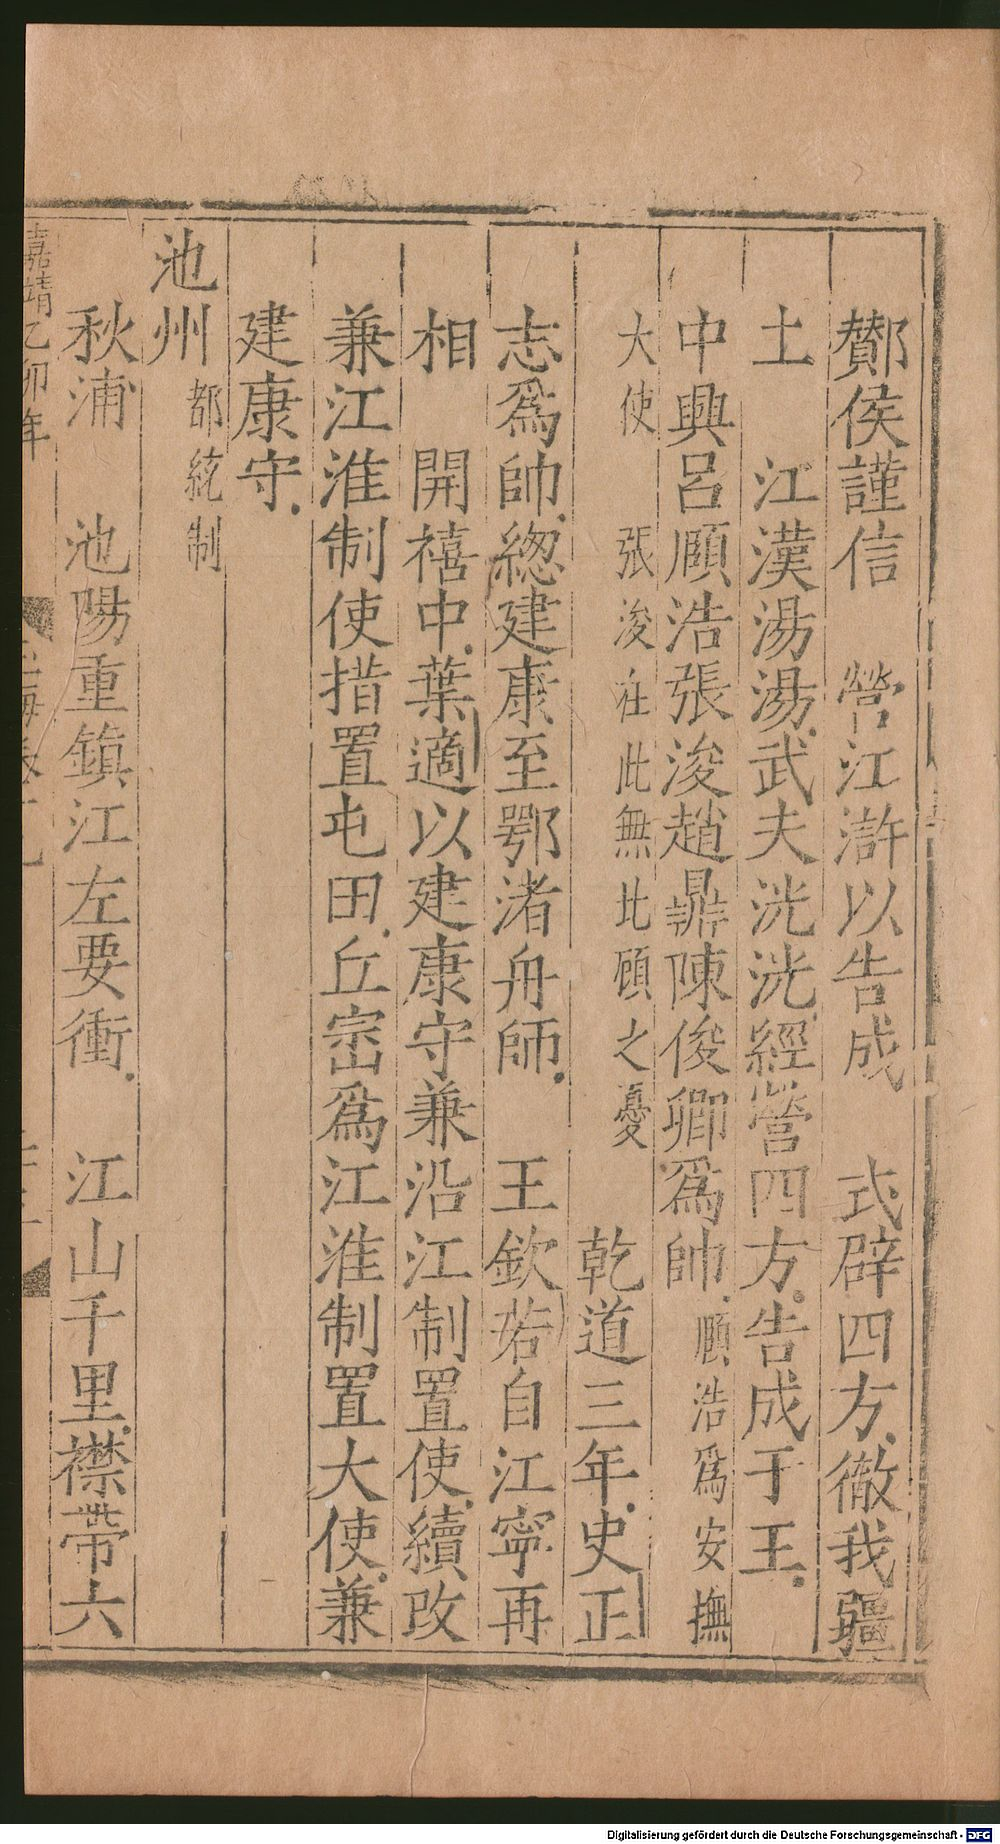 酇侯謹信　營江滸以告成　式辟四方徹我疆
土　江漢湯湯武夫洸洸經營四方告成于王
中興呂頤浩張浚趙鼎陳俊卿爲帥頤浩爲安撫
大使　張浚在此無北顧之憂　乾道三年史正
志爲帥總建康至鄂渚舟師　王欽若自江寧再
相　開禧中葉適以建康守兼沿江制置使續改
兼江淮制使措置屯田丘崈爲江淮制置大使兼
建康守
池州都統制
秋浦　池陽重鎮江左要衝　江山千里襟帶六
嘉靖乙卯年
Digitalisierung gefördert durch die Deutsche Forschungsgemeinschaft - DFG